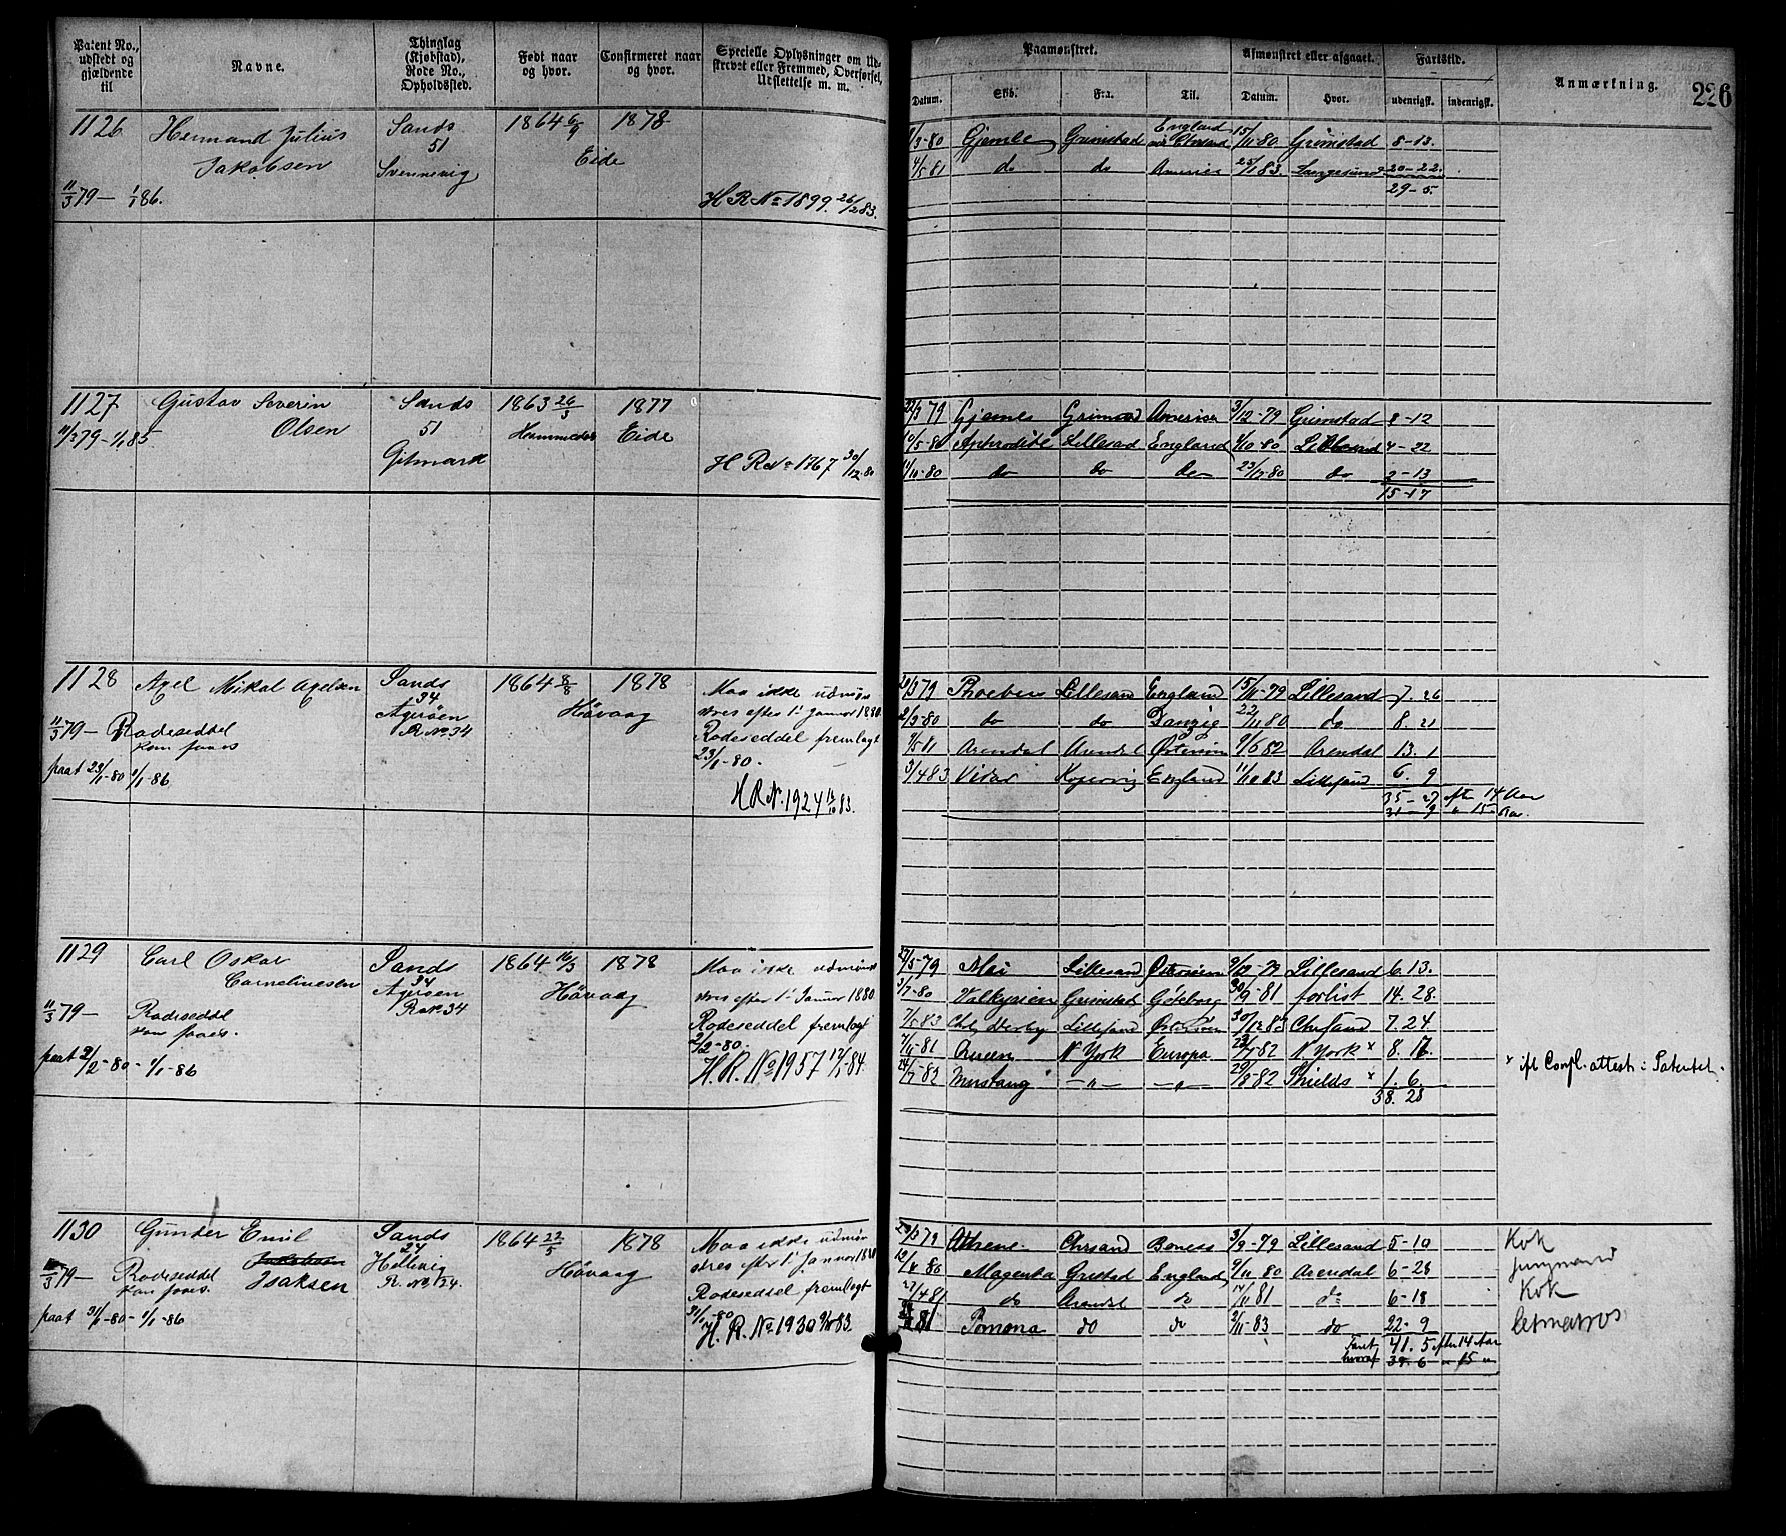 Patent No., udstedt og gjældende til
Navne.
Thinglag (Kjøbstad), Rode No., Opholdssted.
Født naar og hvor.
Confirmeret naar og hvor.
Specielle Oplysninger om Udskrevet eller Fremmed, Overførsel, Udslettelse m. m.
Paamønstret.
Datum.
Skib.
Fra.
Til.
Afmønstret eller afgaaet.
Datum.
Hvor.
Fartstid.
udenrigsk.
indenrigsk.
Anmærkning.
226
1126
Hermand Julius
Jakobsen
Sands
51
Svennevig
1864 6/9
Eide
1878
11/3 79 — 1/1 86.
H R No 1899. 26/2 83.
1/3-80 Gjembe Grimstad England 15/11-80 Grimstad 8-13.
4/5 81 do do America 25/1 83. Langesund 20-22
29-5.
1127
Gustav Severin
Olsen
Sands
51
Gitmark
1863 26/3
Hommedal
1877
Eide
11/3 79 - 1/1 85
H R No 1767 30/12-80
22/3 79 Gjembe Grimstad America 3/12-79 Grimstad 8-12
10/5-80 Aphrodite Lillesand England 1/10-80 Lillesand 4-22
11/10-80 do do do 23/12-80 do 2-13
15-17
1128
Axel Mikal Axelsen
Sands
34
Agerøen
R No 34
1864 8/8
Høvaag
1878
11/3 79 — Rodeseddel
kan faaes
paat 23/1-80 1/1-86
Maa ikke udmøn
stres efter 1ste Januar 1880.
Rodeseddel fremlagt
23/1-80.
H R No. 1924 13/10 83.
20/3 79 Phoebus Lillesand England 15/11-79 Lillesand 7. 26
2/3-80 do do Danzig 22/11 80 do 8. 21
9/5 81 Arendal Arendal Østersøen 9/6 82 Arendal 13. 1
3/4 83 Vidar England 11/10 83 Lillesand 6. 9
35-27 efter 14 Aar
31-9 " 15 Aar.
1129
Carl Oskar
Corneliusen
Sands
34
Agerøen
R No 34
1864 16/3
Høvaag
1878
11/3 79 —
Rodeseddel
kan faaes.
paat 2/2-80 - 1/1-86
Maa ikke udmøn
stres efter 1ste Januar 1880
Rodeseddel fremlagt
2/2-80.
H. R. No 1957 12/1-84.
27/5 79 Mai Lillesand Østersøen 9/12-79 Lillesand 6. 13.
3/7-80 Valkyrien Grimstad Göteborg 30/9-81 forlist 14. 28.
7/5 83 Ch. Derby Lillesand Østersøen 30/12 83 Chrsand 7. 24.
7/11-81 Queen N York Europa 23/7-82 N. York × 8. 17.
24/7-82 Mustang —"— —"— 29/8-82 Shields × 1. 6
38. 28
× ifl Confl. attest i Patentet.
1130
Gunder Emil
Jakobsen
Isaksen
Sands
34
Hellevig
R. No 34.
1864 22/5
Høvaag
1878
11/3 79 —
Rodeseddel
kan faaes.
paat 31/1-80 - 1/1-86
Maa ikke udmøn
stres efter 1ste Januar 1880
Rodeseddel fremlagt
31/1-80
H. R. No 1930 83.
29/3 79 Athene Chrsand Boness 3/9-79 Lillesand 5-10 Kok
12/4 80 Magenta Grstad England 9/11 80 Arendal 6-28 Jungmand
27/4 81 do Arendal do 14/11 81 do 6-18 Kok
81 Pomona do do 2/11-83 do 22-9 Letmatros
Fart 41. 5 efter 14 Aar
hvoraf 39. 6 " 15 "